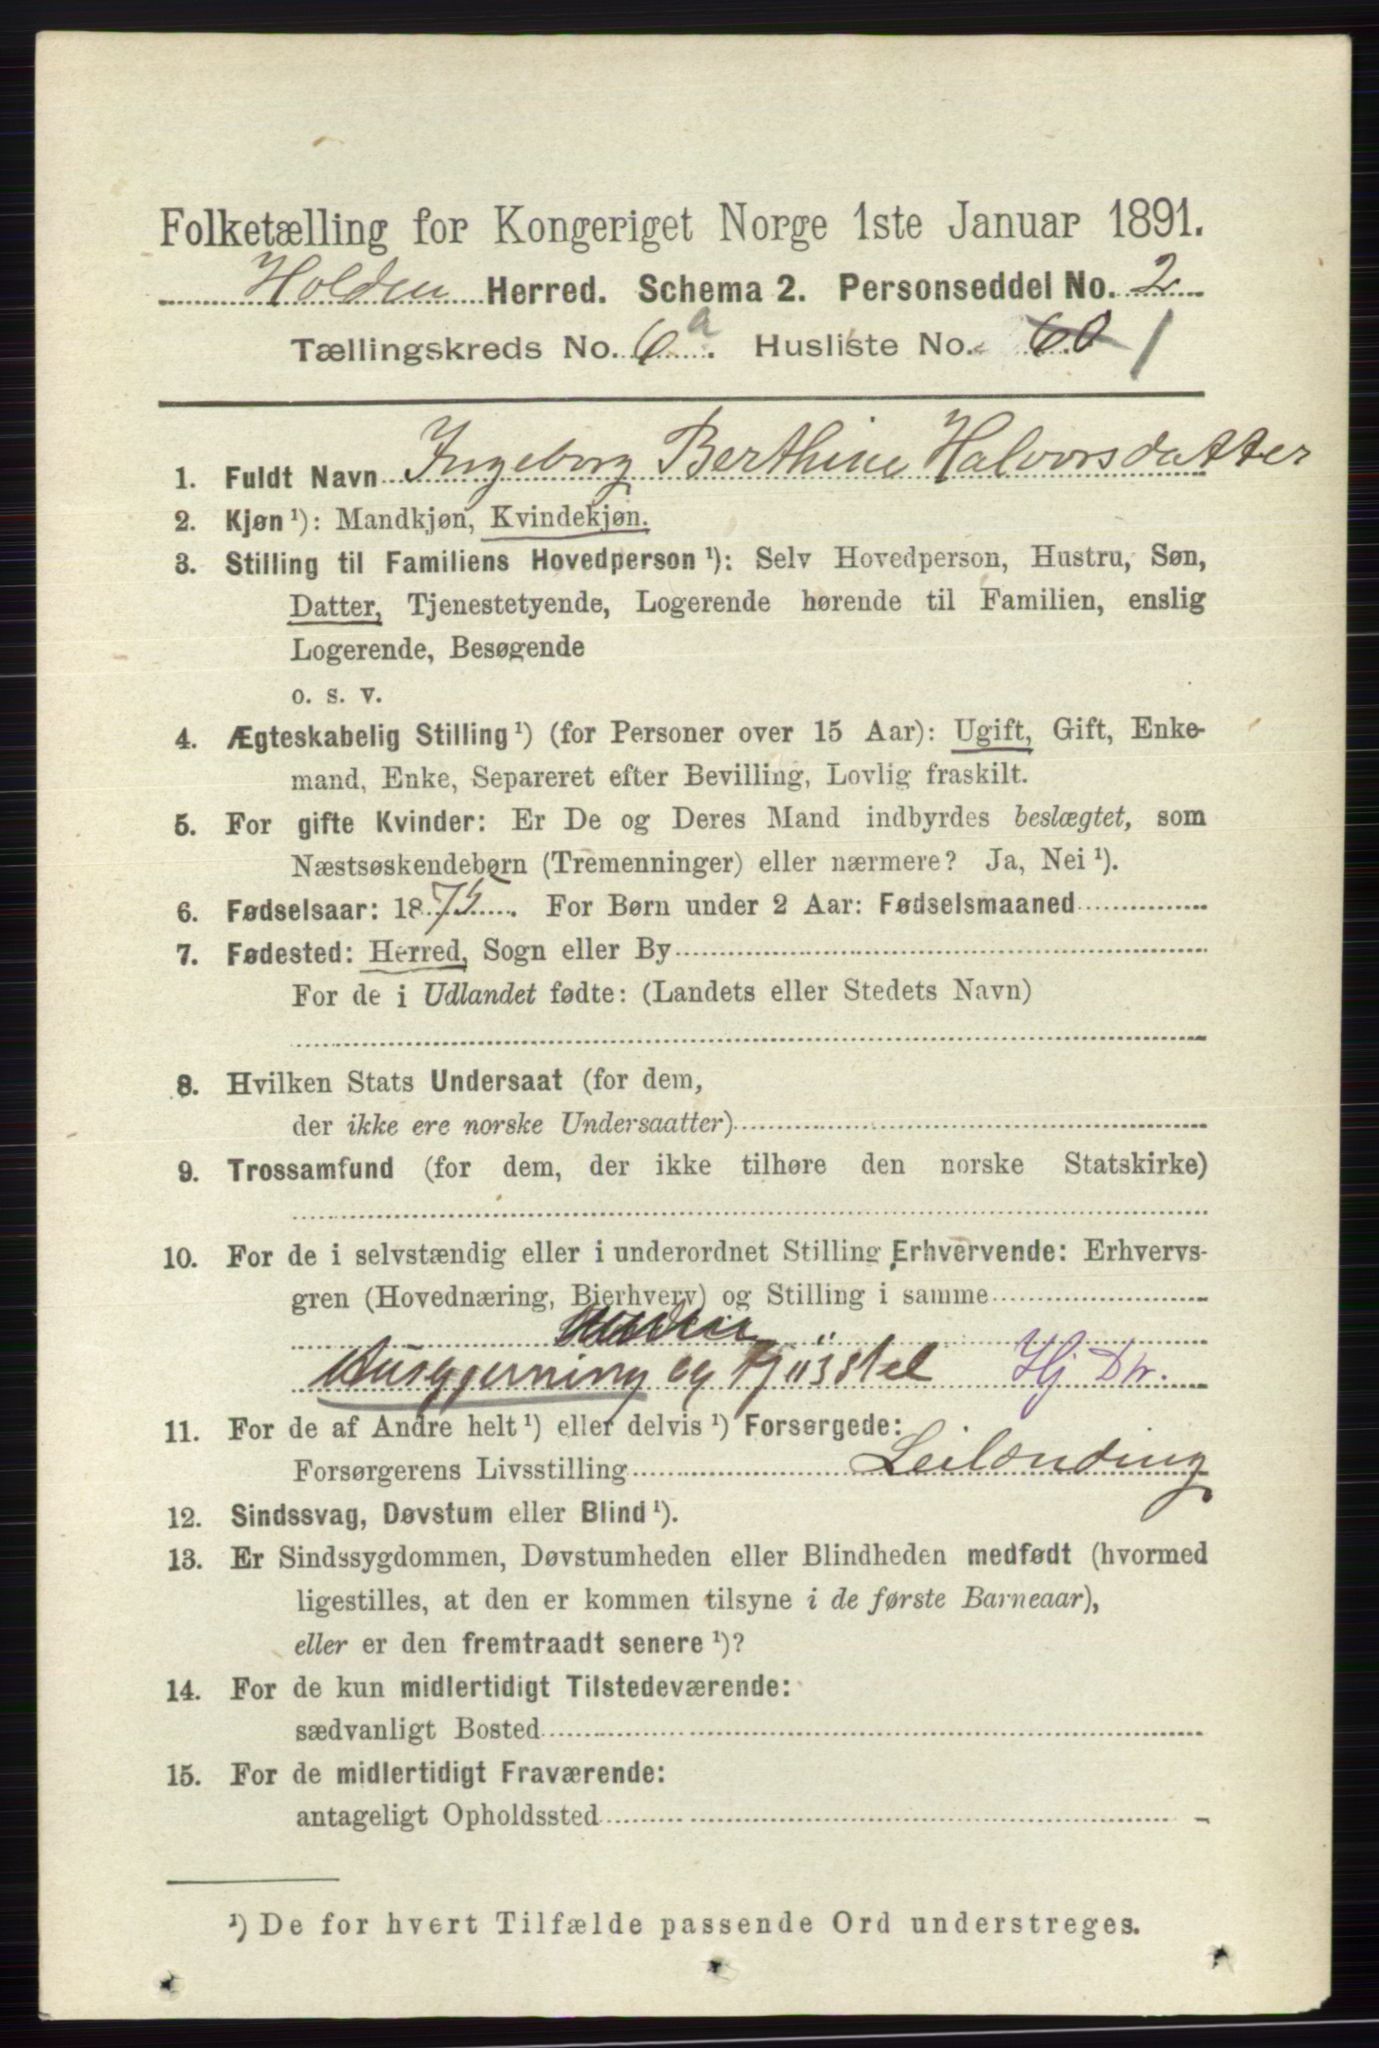 Folketælling for Kongeriget Norge 1ste Januar 1891.
Holden Herred. Schema 2. Personseddel No. 2
Tællingskreds No. 6 a. Husliste No. 60 1
1. Fuldt Navn Ingeborg Berthine Halvorsdatter
2. Kjøn ¹): Mandkjøn, Kvindekjøn.
3. Stilling til Familiens Hovedperson ¹): Selv Hovedperson, Hustru, Søn,
Datter, Tjenestetyende, Logerende hørende til Familien, enslig
Logerende, Besøgende
o. s. v.
4. Ægteskabelig Stilling ¹) (for Personer over 15 Aar): Ugift, Gift, Enke-
mand, Enke, Separeret efter Bevilling, Lovlig fraskilt.
5. For gifte Kvinder: Er De og Deres Mand indbyrdes beslægtet, som
Næstsøskendebørn (Tremenninger) eller nærmere? Ja, Nei ¹).
6. Fødselsaar: 1875. For Børn under 2 Aar: Fødselsmaaned
7. Fødested: Herred, Sogn eller By
For de i Udlandet fødte: (Landets eller Stedets Navn)
8. Hvilken Stats Undersaat (for dem,
der ikke ere norske Undersaatter)
9. Trossamfund (for dem, der ikke tilhøre den norske Statskirke)
10. For de i selvstændig eller i underordnet Stilling Erhvervende: Erhvervs-
gren (Hovednæring, Bierhverv) og Stilling i samme
Husgjerning og Kjüsstel Hj Dtr.
11. For de af Andre helt ¹) eller delvis ¹) Forsørgede:
Forsørgerens Livsstilling Leilænding
12. Sindssvag, Døvstum eller Blind ¹).
13. Er Sindssygdommen, Døvstumheden eller Blindheden medfødt (hvormed
ligestilles, at den er kommen tilsyne i de første Barneaar),
eller er den fremtraadt senere ¹)?
14. For de kun midlertidigt Tilstedeværende:
sædvanligt Bosted
15. For de midlertidigt Fraværende:
antageligt Opholdssted
¹) De for hvert Tilfælde passende Ord understreges.